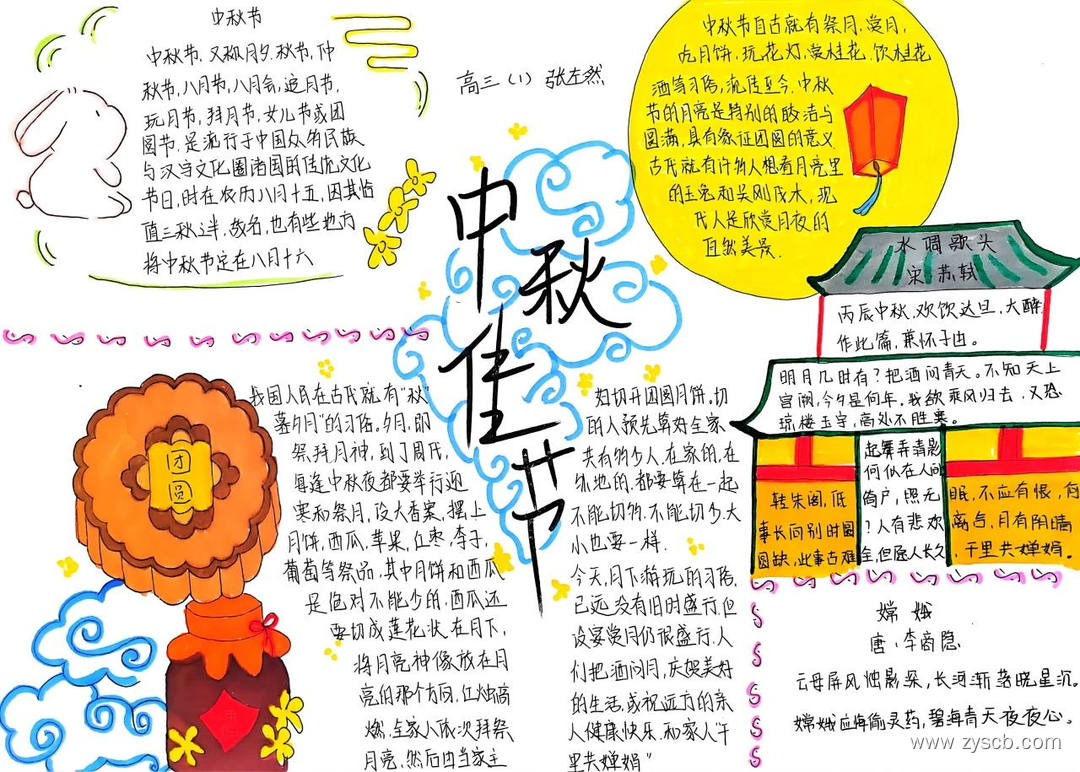 中秋节
中秋节,又称月夕,秋节,仲
秋节,八月节,八月会,追月节,
玩月节,拜月节,女儿节或团
圆节,是流行于中国众多民族
与汉字文化圈诸国的传统文化
节日,时在农历八月十五,因其恰
值三秋之半,故名,也有些地方
将中秋节定在八月十六
高三(1) 张左然
中秋节自古就有祭月,赏月,
吃月饼,玩花灯,赏桂花,饮桂花
酒等习俗,流传至今,中秋
节的月亮是特别的皎洁与
圆满,具有象征团圆的意义
古代就有许多人想看月亮里
的玉兔和吴刚伐木,现
代人是欣赏月夜的
自然美景.
中秋佳节
团
圆
我国人民在古代就有"秋
暮夕月"的习俗,夕月,即
祭拜月神,到了周代,
每逢中秋夜都要举行迎
寒和祭月,设大香案,摆上
月饼,西瓜,苹果,红枣,李子,
葡萄等祭品,其中月饼和西瓜
是绝对不能少的,西瓜还
要切成莲花状,在月下,
将月亮神像放在月
亮的那个方向,红烛高
燃,全家人依次拜祭
月亮,然后由当家主
妇切开团圆月饼,切
的人预先算好全家
共有多少人,在家的,在
外地的,都要算在一起
不能切多,不能切少,大
小也要一样.
今天,月下游玩的习俗,
已远没有旧时盛行,但
设宴赏月仍很盛行,人
们把酒问月,庆贺美好
的生活,或祝远方的亲
人健康快乐,和家人"千
里共婵娟"
水调歌头
宋·苏轼
丙辰中秋,欢饮达旦,大醉,
作此篇,兼怀子由。
明月几时有?把酒问青天。不知天上
宫阙,今夕是何年,我欲乘风归去,又恐
琼楼玉宇,高处不胜寒。
起舞弄清影
何似在人间
转朱阁,低
绮户,照无
眠,不应有恨,何
事长向别时圆
?人有悲欢
离合,月有阴晴
圆缺,此事古难
全,但愿人长久
,千里共婵娟。
嫦娥
唐·李商隐
云母屏风烛影朵,长河渐落晓星沉.
嫦娥应悔偷灵药,碧海青天夜夜心.
www.zyscb.com